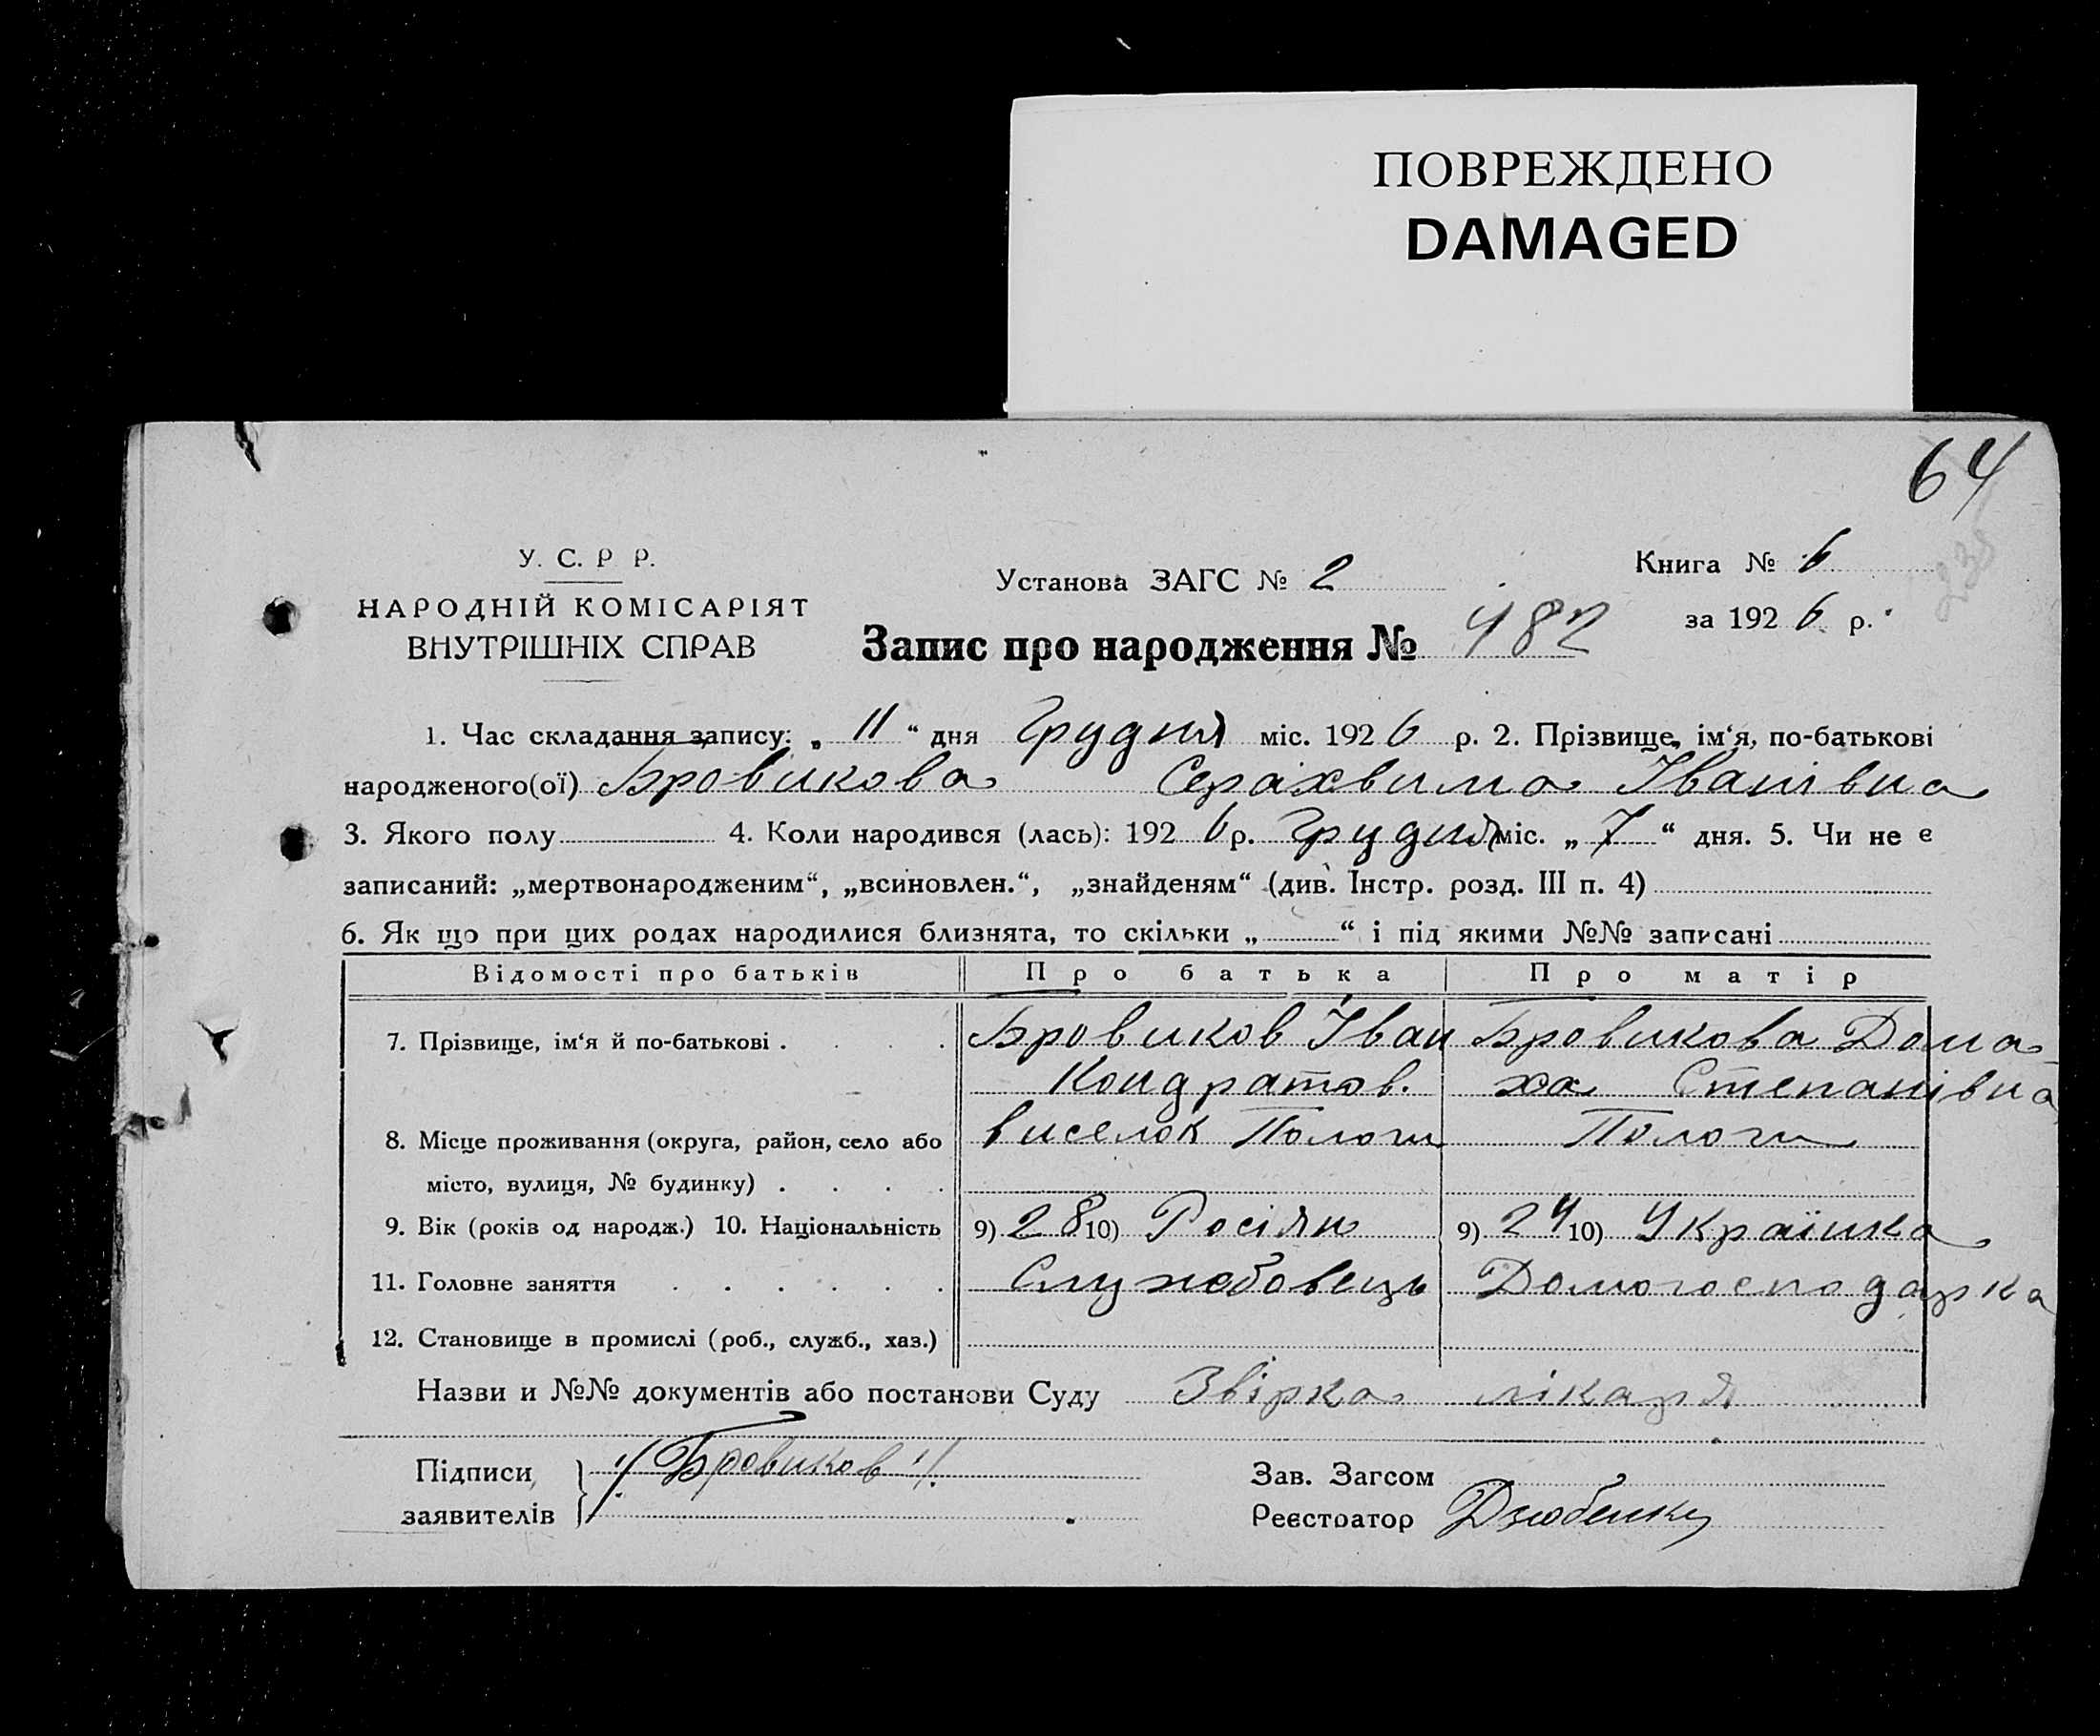 ПОВРЕЖДЕНО
DAMAGED
64
У. С. Р Р.
НАРОДНІЙ КОМІСАРІЯТ
ВНУТРІШНІХ СПРАВ
Установа ЗАГС № 2
Запис про народження № 482
Книга № 6
за 1926 р.
1. Час складання запису: „11“ дня Грудня міс. 1926 р. 2. Прізвище, ім‘я, по-батькові
народженого(ої) Бровикова Серахвима Іванівна
3. Якого полу 4. Коли народився (лась): 1926 р. Грудня міс. „7“ дня. 5. Чи не є
записаний: „мертвонародженим“, „всиновлен.“, „знайденям“ (див. Інстр. розд. III п. 4)
6. Як що при цих родах народилися близнята, то скільки „ “ і під якими №№ записані
Відомості про батьків Про батька Про матір
7. Прізвище, ім‘я й по-батькові . . . . Бровиков Іван Бровикова Дома-
Кондратов. ха Степанівна
8. Місце проживання (округа, район, село або виселок Пологи Пологи
місто, вулиця, № будинку) . . . .
9. Вік (років од народж.) 10. Національність 9) 28 10) Росіян 9) 24 10) Українка
11. Головне заняття . . . . . . Службовець Домогосподарка
12. Становище в промислі (роб., служб., хаз.)
Назви и №№ документів або постанови Суду Звірка лікаря
Підписи
заявителів
/Бровиков/
Зав. Загсом
Реєстратор Дзюбенко